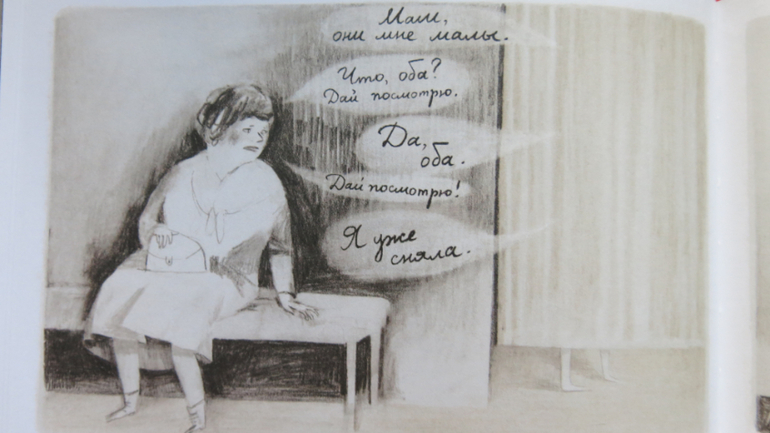 Мам,
они мне малы.
Что, оба?
Дай посмотрю.
Да,
оба.
Дай посмотрю!
Я уже
сняла.